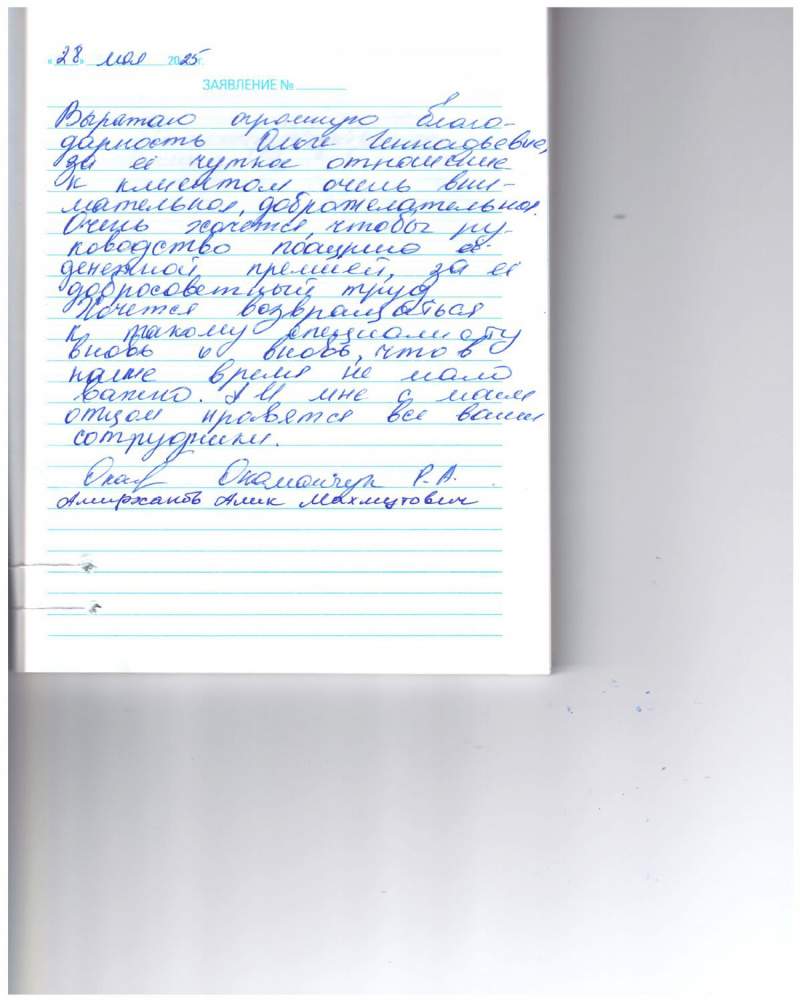 «28» мая 2025г.
ЗАЯВЛЕНИЕ №
Выражаю огромную благо-
дарность Ольге Геннадьевне,
за её чуткое отношение
к клиентом, очень вни-
мательная, доброжелательная.
Очень хочется, чтобы ру-
ководство поощрило её
денежной премией, за её
добросоветный труд
Хочется возвращаться
к такому специалисту
вновь и вновь, что в
наше время не мало
важно. И мне с моим
отцом нравятся все ваши
сотрудники.
Р.А.
Амирханов Алик Махмутович